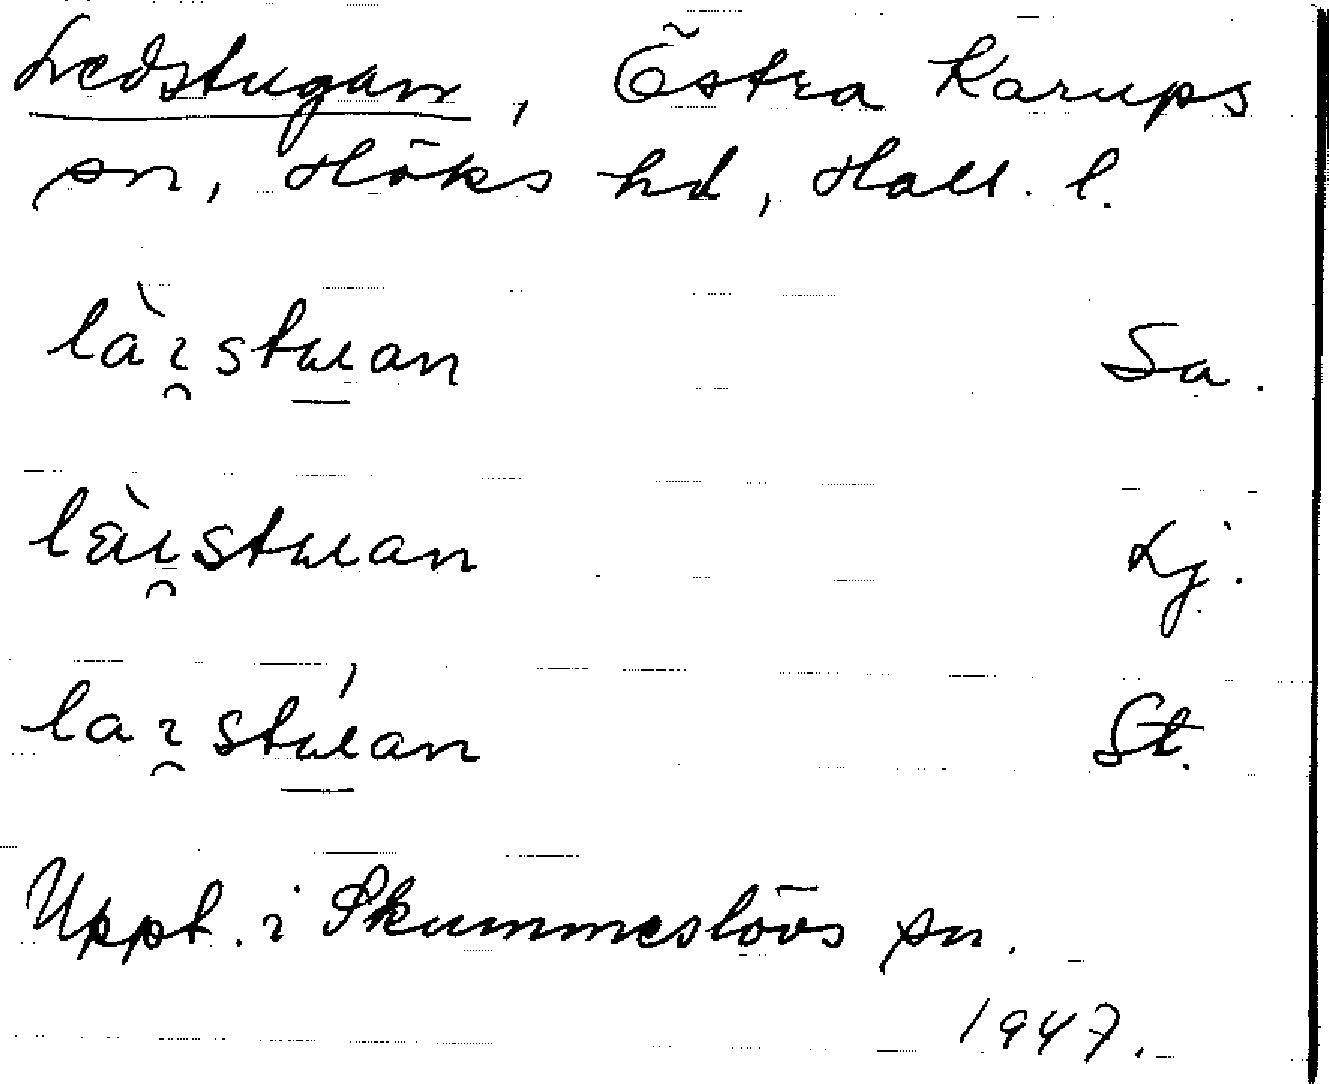 Ledstugan, Östra Karups
sn, Höks hd, Hall. l.
là̀ɪ̯stuan Sa.
lɛ̀ɪ̯stuan Lj.
laɪ̯stúan St.
Uppt. i Skummeslövs sn.
1947.